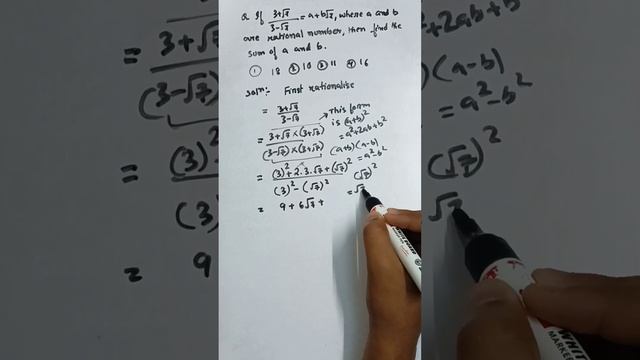 Q. If 3+√7/3-√7 = a+b√7, where a and b
are rational number, then find the
sum of a and b.
① 18 ② 10 ③ 11 ④ 16
Solⁿ:- First rationalise
= 3+√7/3-√7
= 3+√7 × (3+√7)/(3-√7) × (3+√7)
→ This form
is (a+b)²
= a²+2ab+b²
(a+b)(a-b)
= a²-b²
= (3)²+2.3.√7+(√7)²/(3)²-(√7)²
(√7)²
= 9+6√7+